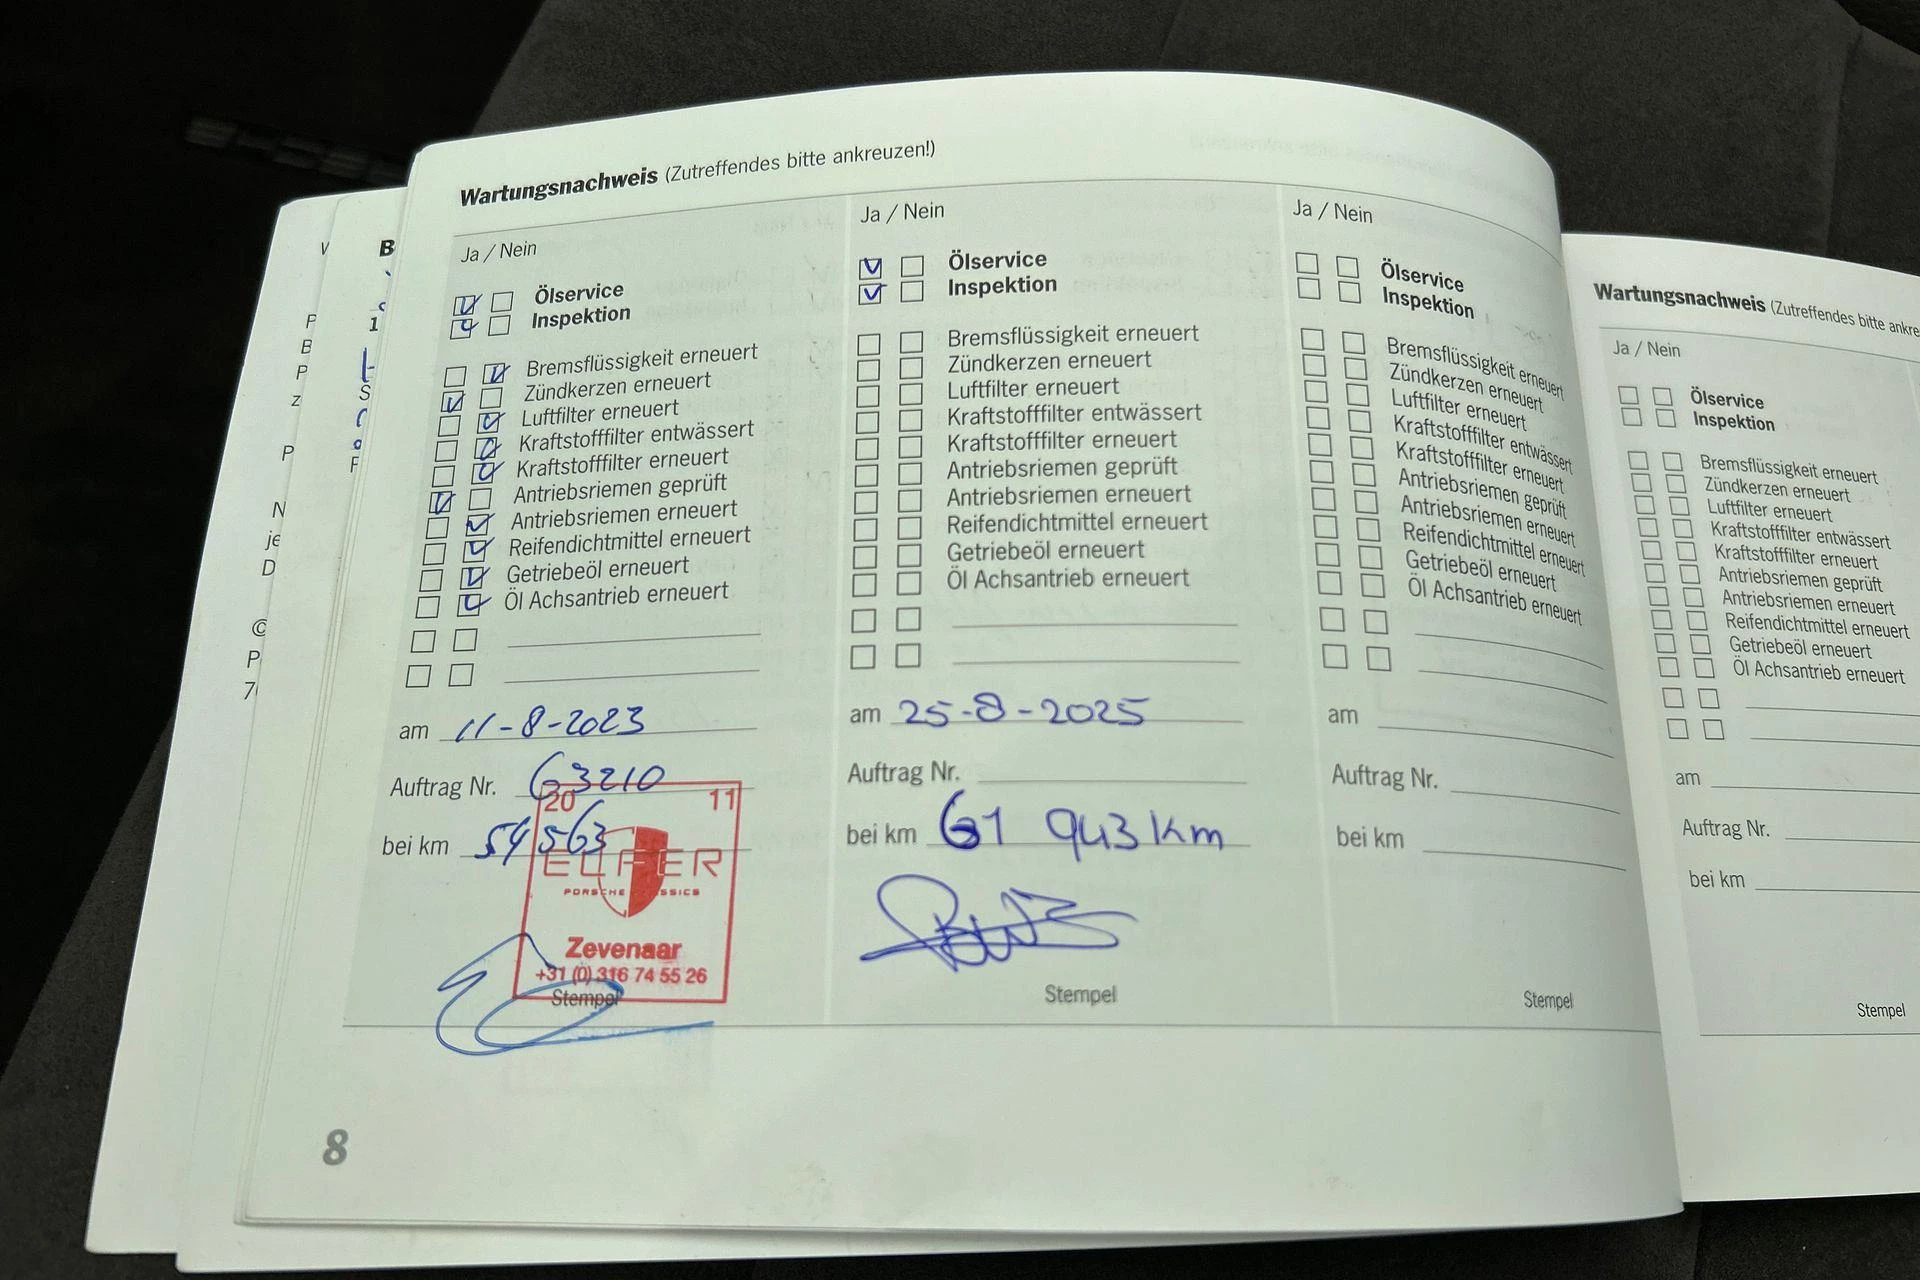 Wartungsnachweis (Zutreffendes bitte ankreuzen!)
Ja / Nein
Ölservice
Inspektion
Bremsflüssigkeit erneuert
Zündkerzen erneuert
Luftfilter erneuert
Kraftstofffilter entwässert
Kraftstofffilter erneuert
Antriebsriemen geprüft
Antriebsriemen erneuert
Reifendichtmittel erneuert
Getriebeöl erneuert
Öl Achsantrieb erneuert
am 11-8-2023
Auftrag Nr. 63210
bei km 54563
20 11
ELFER
Zevenaar
+31 (0) 316 74 55 26
Stempel
Ja / Nein
Ölservice
Inspektion
Bremsflüssigkeit erneuert
Zündkerzen erneuert
Luftfilter erneuert
Kraftstofffilter entwässert
Kraftstofffilter erneuert
Antriebsriemen geprüft
Antriebsriemen erneuert
Reifendichtmittel erneuert
Getriebeöl erneuert
Öl Achsantrieb erneuert
am 25-8-2025
Auftrag Nr.
bei km 61 943 km
Stempel
Ja / Nein
Ölservice
Inspektion
Bremsflüssigkeit erneuert
Zündkerzen erneuert
Luftfilter erneuert
Kraftstofffilter entwässert
Kraftstofffilter erneuert
Antriebsriemen geprüft
Antriebsriemen erneuert
Reifendichtmittel erneuert
Getriebeöl erneuert
Öl Achsantrieb erneuert
am
Auftrag Nr.
bei km
Stempel
8
Wartungsnachweis (Zutreffendes bitte ankre
Ja / Nein
Ölservice
Inspektion
Bremsflüssigkeit erneuert
Zündkerzen erneuert
Luftfilter erneuert
Kraftstofffilter entwässert
Kraftstofffilter erneuert
Antriebsriemen geprüft
Antriebsriemen erneuert
Reifendichtmittel erneuert
Getriebeöl erneuert
Öl Achsantrieb erneuert
am
Auftrag Nr.
bei km
Stempel